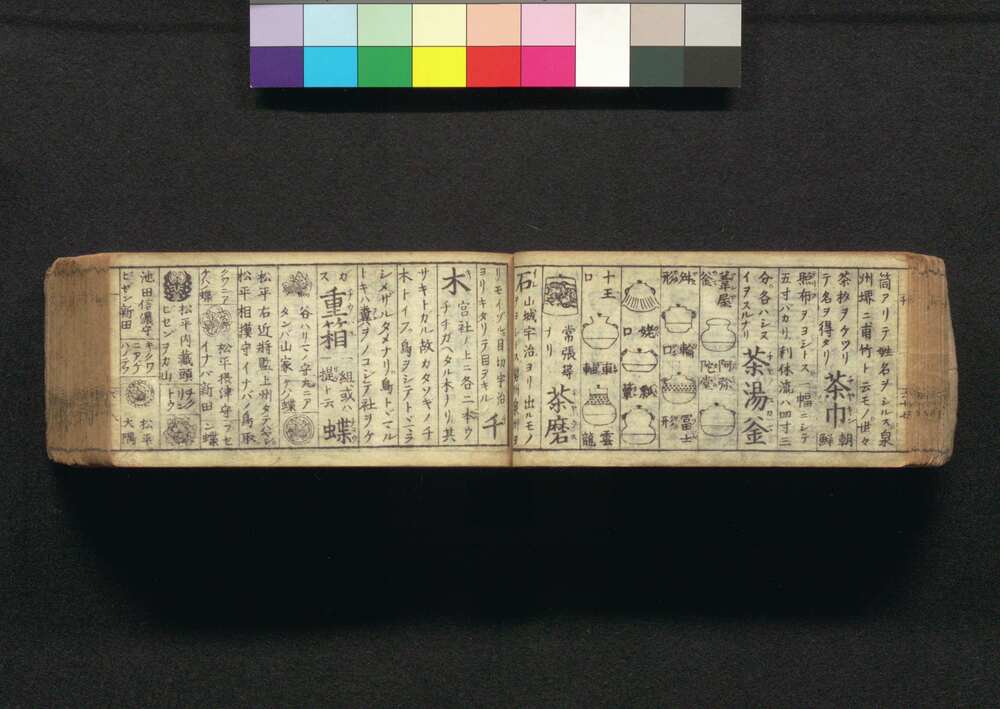 筒アリテ姓名ヲシルス泉
州堺ニ甫竹ト云モノ世々
茶杓ヲケヅリ
テ名ヲ得タリ
茶巾
朝鮮
照布ヲヨシトス一幅ニシテ
五寸バカリ利休流ハ四寸三
分各ハシヌ
イヲスルナリ
茶湯釜
葦屋釜
阿弥陀堂
姥口
冨士形
十王口
車軸
雲龍
常張翠
ナリ
茶磨
石
山城宇治ヨリ出ルモノ
リモイブル目切宇治
ヨリキタリテ目ヲキル
千
木
宮社ノ上ニ各二本ウ
チチガヘタル木ナリ其
サキトガル故カタソギノチ
木トイフ鳥ヲシテアトヾマラ
シメザルタメナリ鳥トヾマル
トキハ糞ヲノコシテ社ヲケ
ガス
重箱
一組或ハ
一提ト云
蝶
谷ハリマノ守丸ニアゲハ
タンバ山家ケノ蝶
松平右近将監上州タテバヤシ
松平相摸守イナバノ鳥取
松平摂津守
イナバ新田
蝶
松平内蔵頭
ビゼンヲカ山
池田信濃守
ビゼン新田
松平
大隅